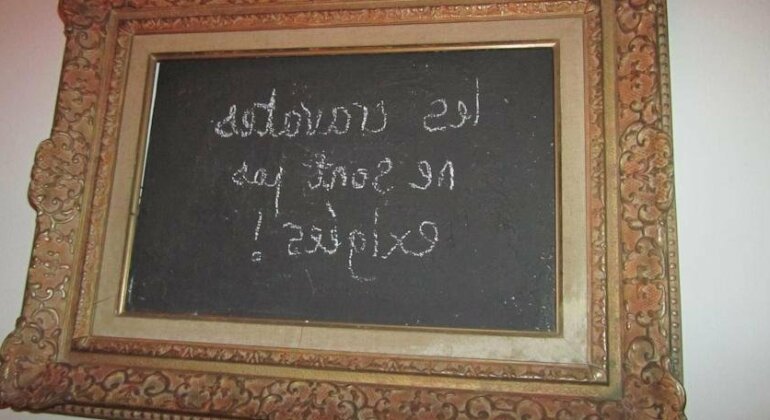 les cravates
ne sont pas
exigées !